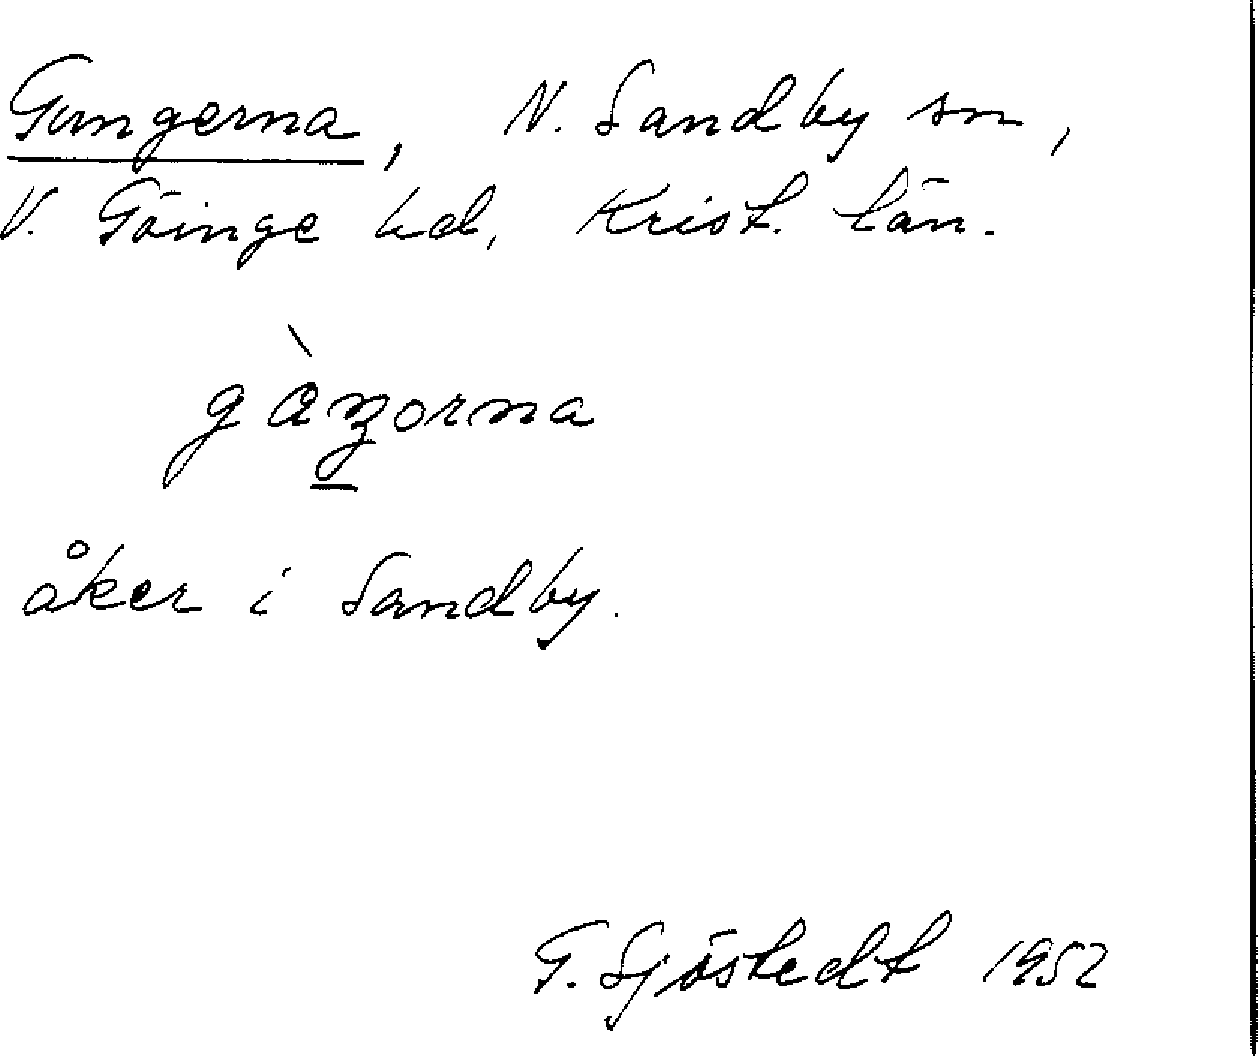 Gungerna, N. Sandby sn,
V. Göinge hd, Krist. län.
åker i Sandby.
G. Sjöstedt 1952